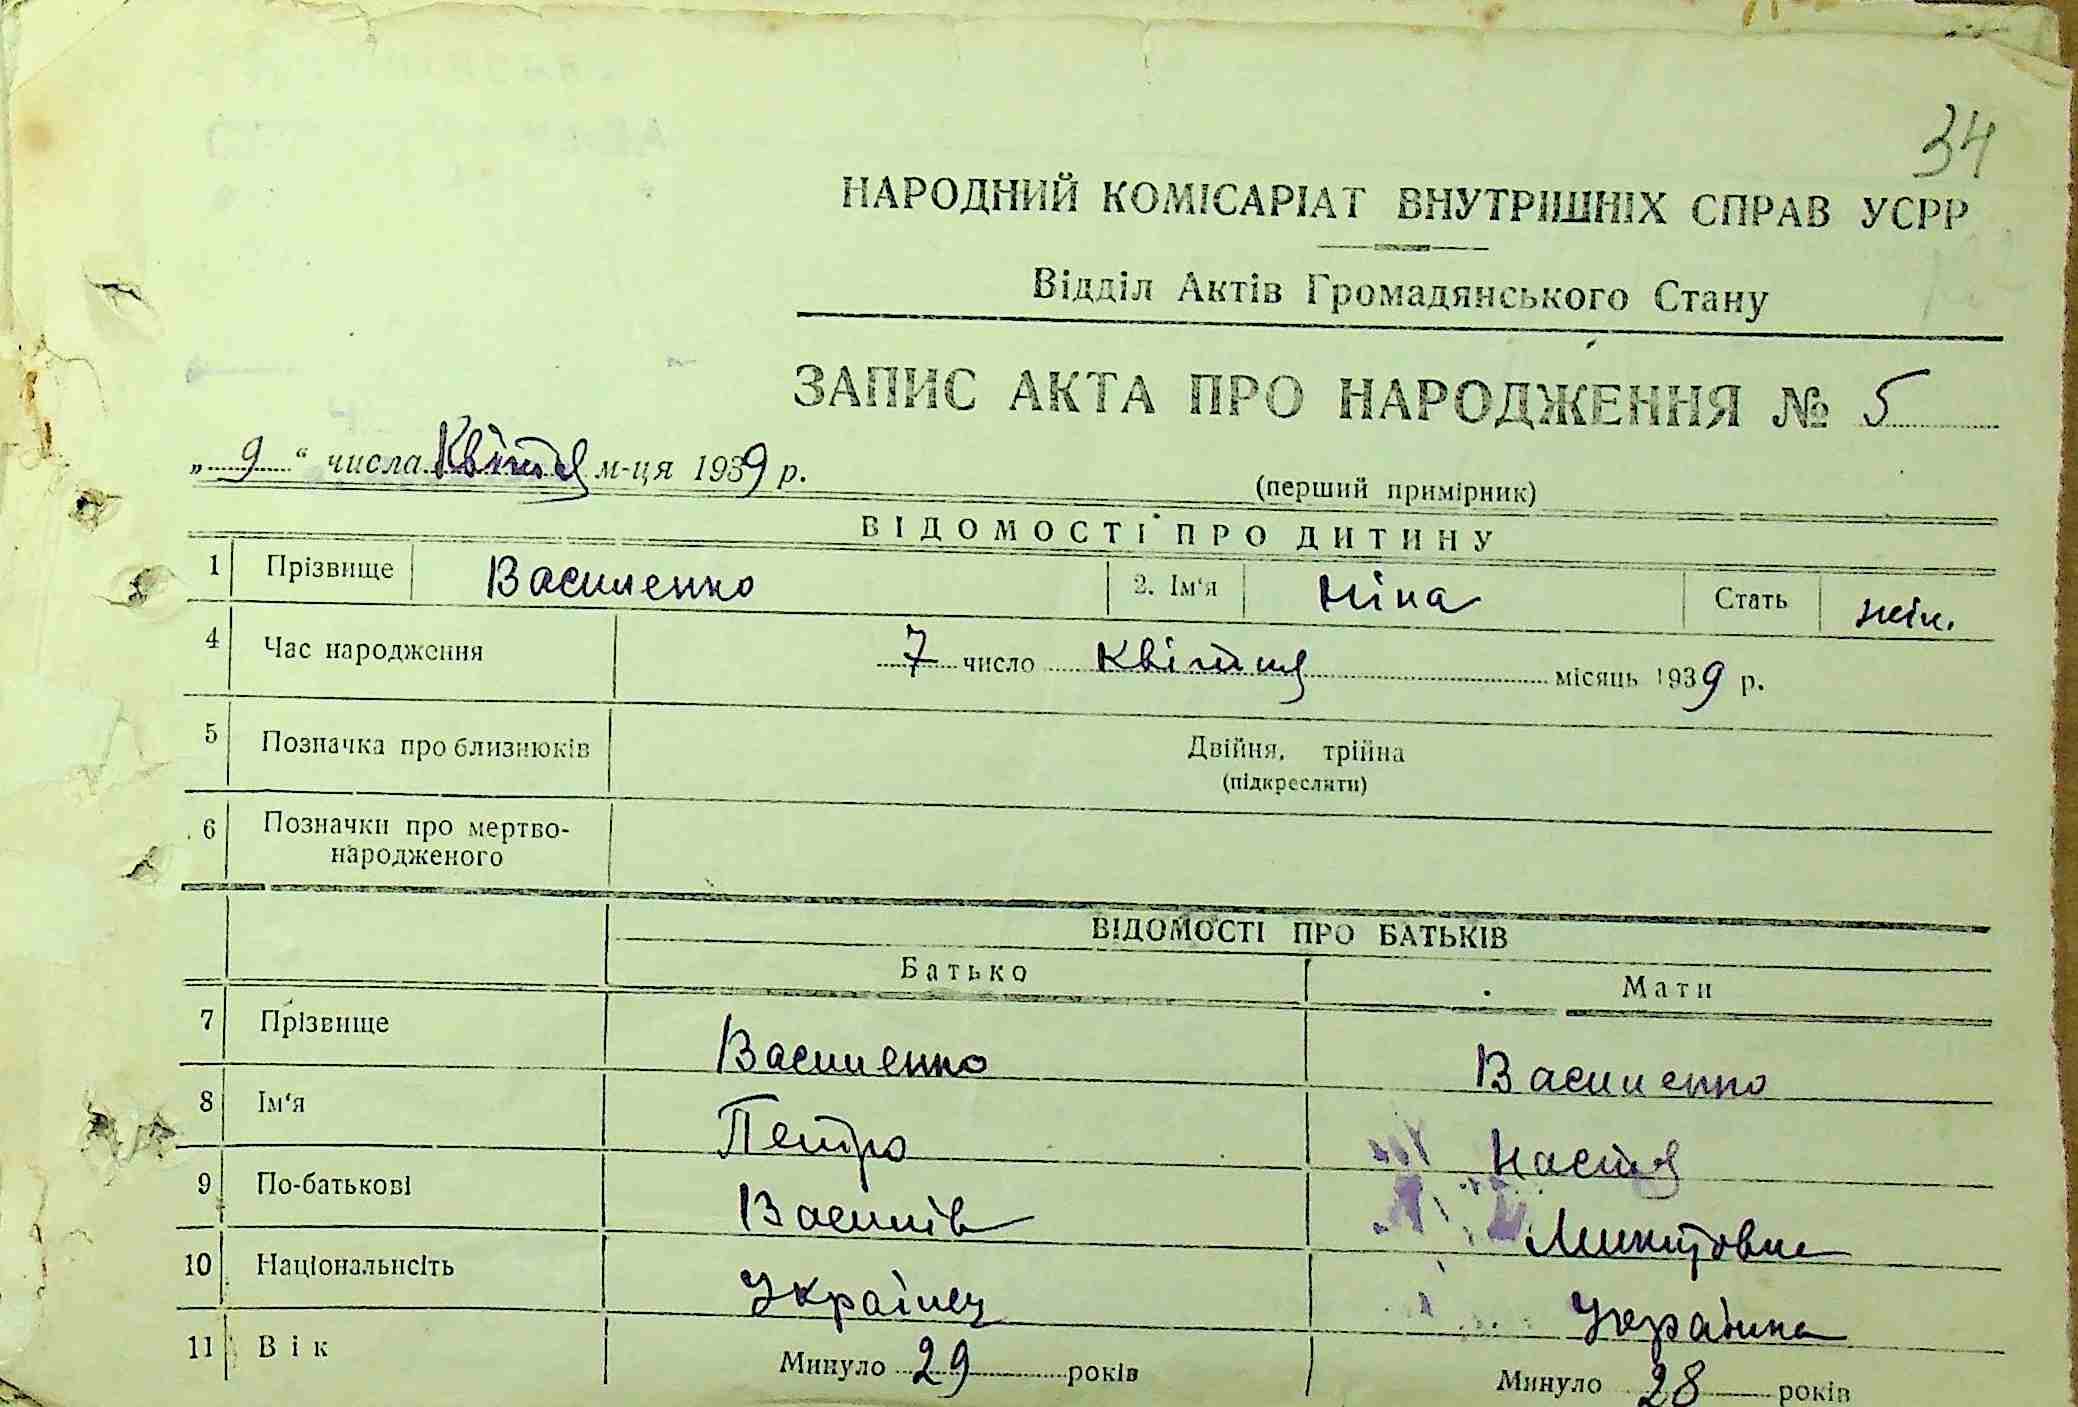 34
НАРОДНИЙ КОМІСАРІАТ ВНУТРІШНІХ СПРАВ УСРР
Відділ Актів Громадянського Стану
ЗАПИС АКТА ПРО НАРОДЖЕННЯ № 5
„9“ числа Квітня м-ця 1939 р.
(перший примірник)
ВІДОМОСТІ ПРО ДИТИНУ
1 Прізвище Василенко 2. Ім'я Ніна Стать жін.
4 Час народження 7 число Квітня місяць 1939 р.
5 Позначка про близнюків Двійня, трійна
(підкреслити)
6 Позначки про мертво-
народженого
ВІДОМОСТІ ПРО БАТЬКІВ
Батько Мати
7 Прізвище Василенко Василенко
8 Ім'я Петро Настя
9 По-батькові Василів
10 Національність Українец Українка
11 Вік Минуло 29 років Минуло 28 років